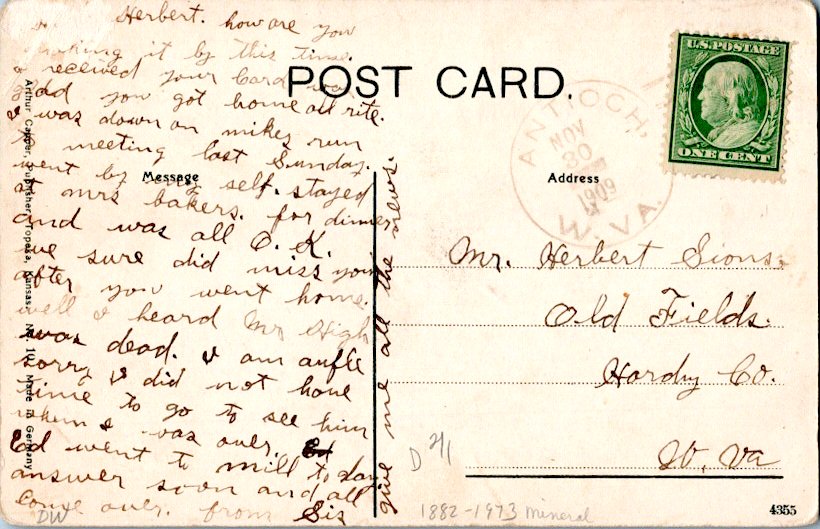 Herbert. how are you
making it by this time.
I received your Card was
glad you got home all rite.
I was down on mikes run
to meeting last Sunday.
went by my self. stayed
at mrs bakers. for dinner
and was all O. K.
we sure did miss you
after you went home.
well I heard Mr High
was dead. I am aufle
sorry I did not have
time to go to see him
when I was over.
Ed went to mill to day
answer soon and all
come over. from Sis
give me all the news.
POST CARD.
Message
Address
Arthur Capper, Publisher, Topeka, Kansas. No. 102 Made in Germany
U.S. POSTAGE
ONE CENT
ANTIOCH,
NOV
30
1909
W. VA.
Mr. Herbert Sions,
Old Fields.
Hardy Co.
W. Va
D 2/1
DW
1882-1973 mineral
4355